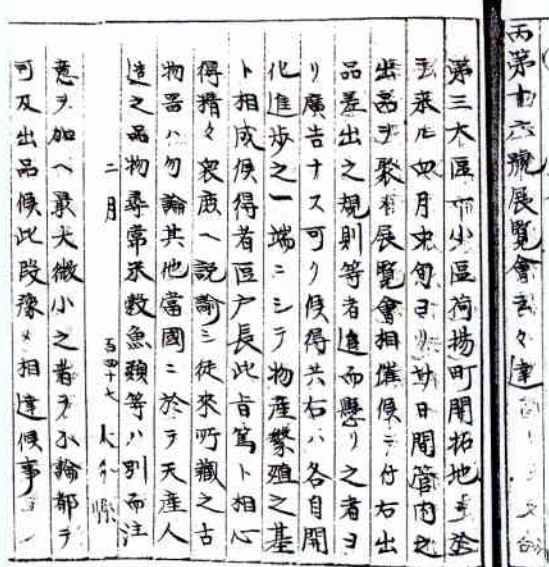 丙第十六號展覧會云々達
第三大區一小區荷揚町開拓地ニ於
テ来ル四月中旬ヨリ廿日間管内之
出品ヲ聚メ展覧會相催候ニ付右出
品差出之規則等者追而懸リ之者ヨ
リ廣告ナス可ク候得共右ハ各自開
化進歩之一端ニシテ物産繁殖之基
ト相成候得者區戸長此旨篤ト相心
得精々衆庶ヘ説諭シ従来所蔵之古
物器ハ勿論其他當國ニ於テ天産人
造之品物尋常米穀魚類等ハ別而注
二月 百四十七 大分縣
意ヲ加ヘ最大微小之者ヲ不論都テ
可及出品候此段豫メ相達候事